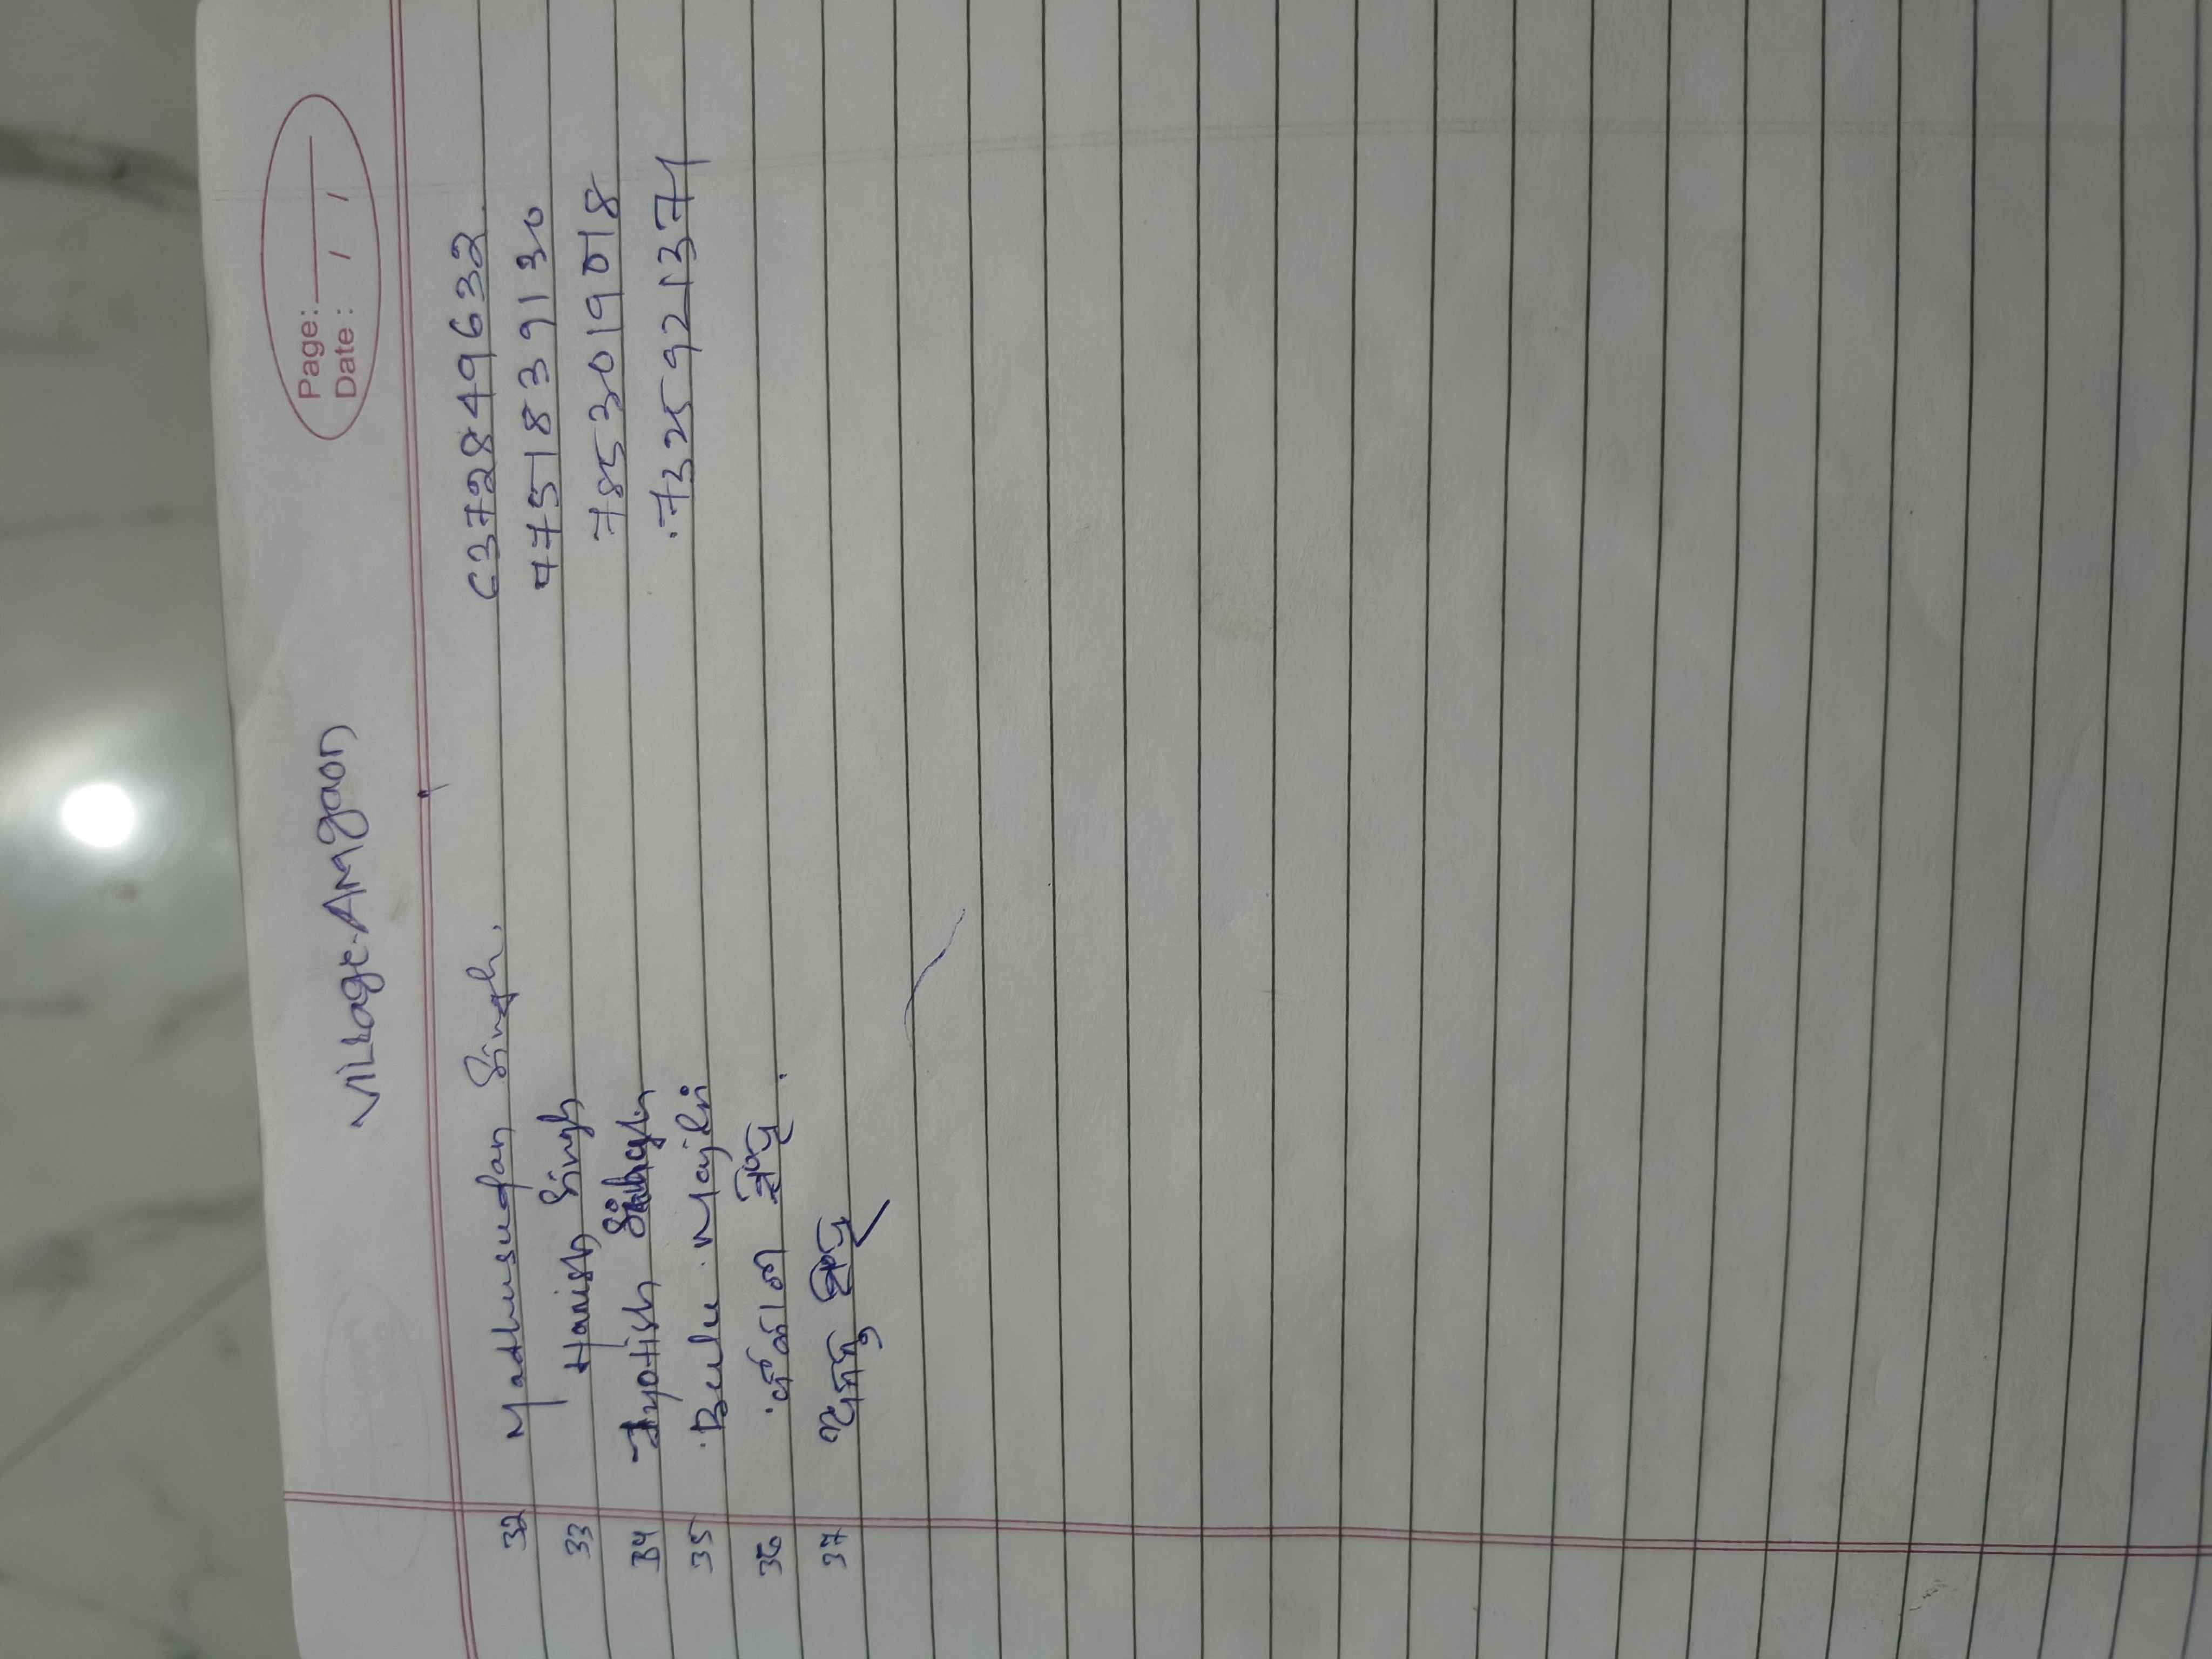 Page:
Date : / /
Village-Amgaon
32 Madhusudan Singh. 6372849632
33 Harish Singh 7751839130
34 Jyotish Singh 7853019018
35 Bulu Majhi 7325921371
36
37